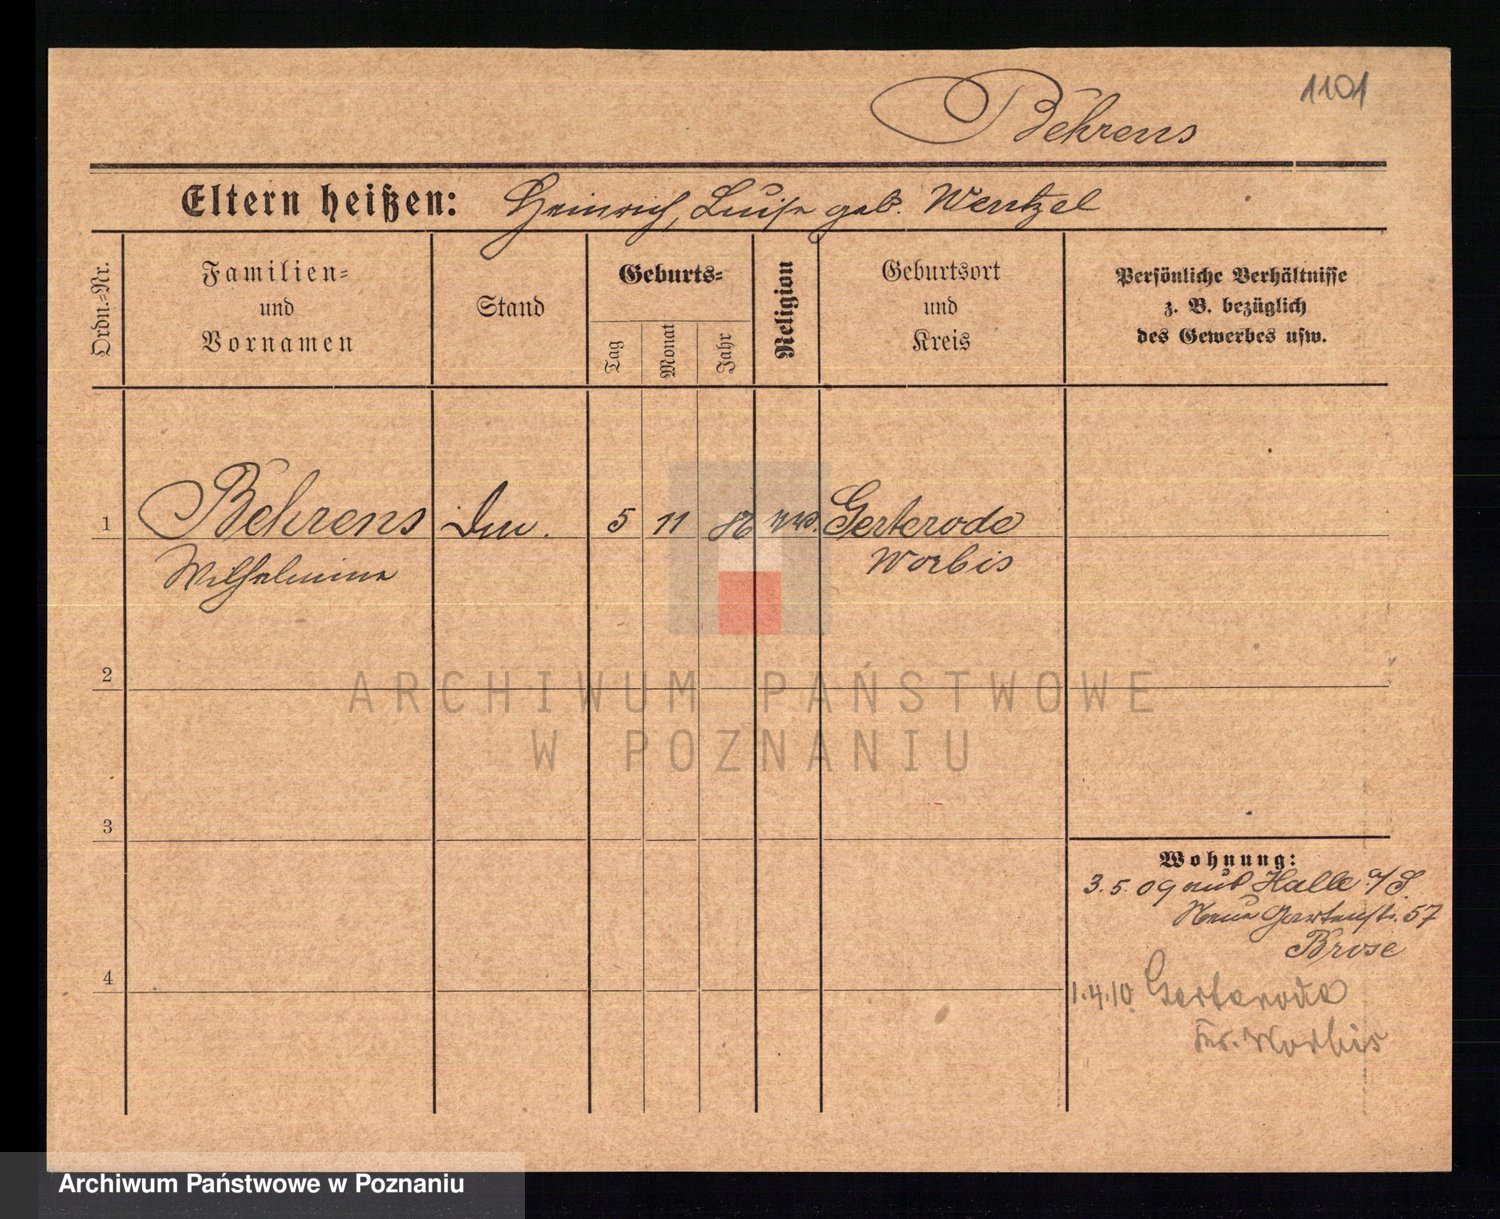 1101
Behrens
Eltern heißen: Heinrich, Luise geb. Wentzel
Ordn.-Nr.
Familien-
und
Vornamen
Stand
Geburts-
Tag
Monat
Jahr
Religion
Geburtsort
und
Kreis
Persönliche Verhältnisse
z. B. bezüglich
des Gewerbes usw.
1 Behrens 5 11 86 Gerterode
Wilhelmine Worbis
2
3
4
Wohnung:
3.5.09 aus Halle a/S
Neue Gartenstr. 57
Brose
1.4.10 Gerterode
Worbis
ARCHIWUM PAŃSTWOWE
W POZNANIU
Archiwum Państwowe w Poznaniu